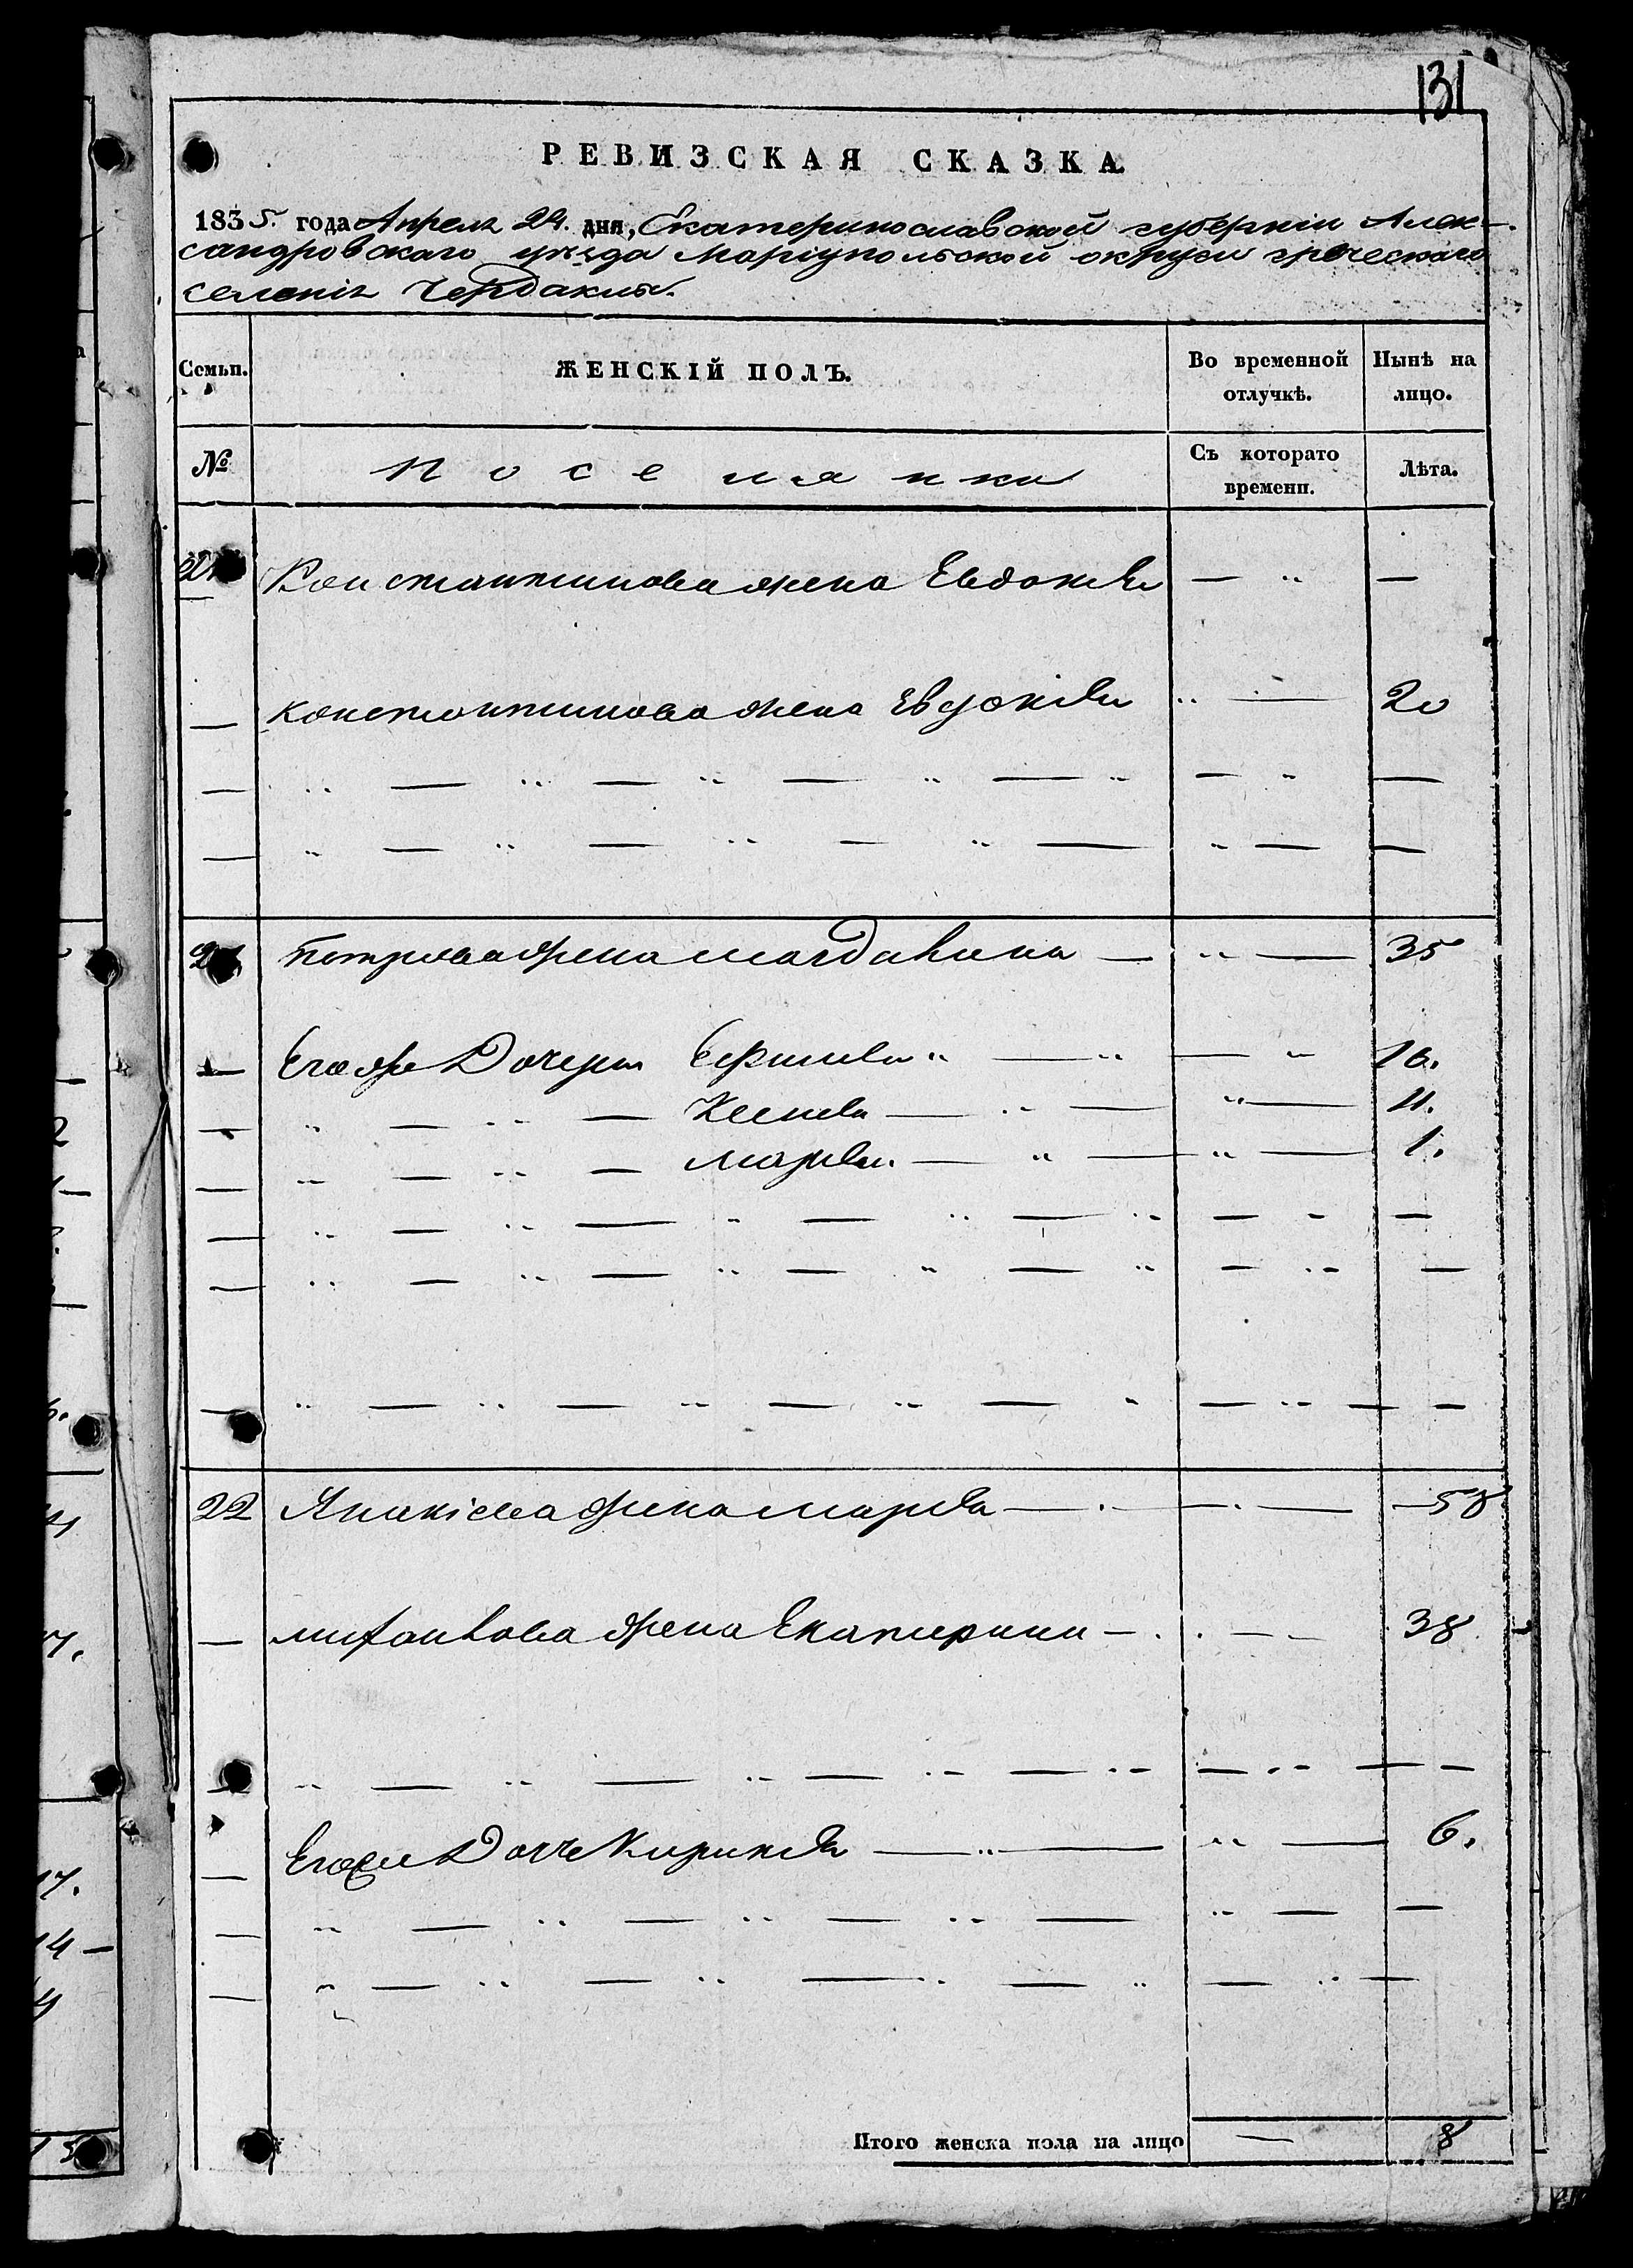 131
РЕВИЗСКАЯ СКАЗКА
1835. года Апреля 24. дня, Екатеринославской губерніи Алек-
сандровскаго уѣзда Маріупольской округи греческаго
селенія Чердаклы.
Семьи. ЖЕНСКІЙ ПОЛЪ. Во временной отлучкѣ. Нынѣ на лицо.
№ Поселянки Съ которато времени. Лѣта.
Константинова жена Евдокия — " —
— Константинова жена Евдокія " — 20
Петрова жена Магдалина — " — 35
— Его же Дочери Ефимия " — " — " 16.
— " — " — Ксения — " — " — 11.
— " — " — Мария. — " — " — 1.
22 Ананіева жена Мария — 58
— Михайлова жена Екатерина — 38
— Его же Дочь Кирикия — " — " — 6.
Итого женска пола на лицо — 8